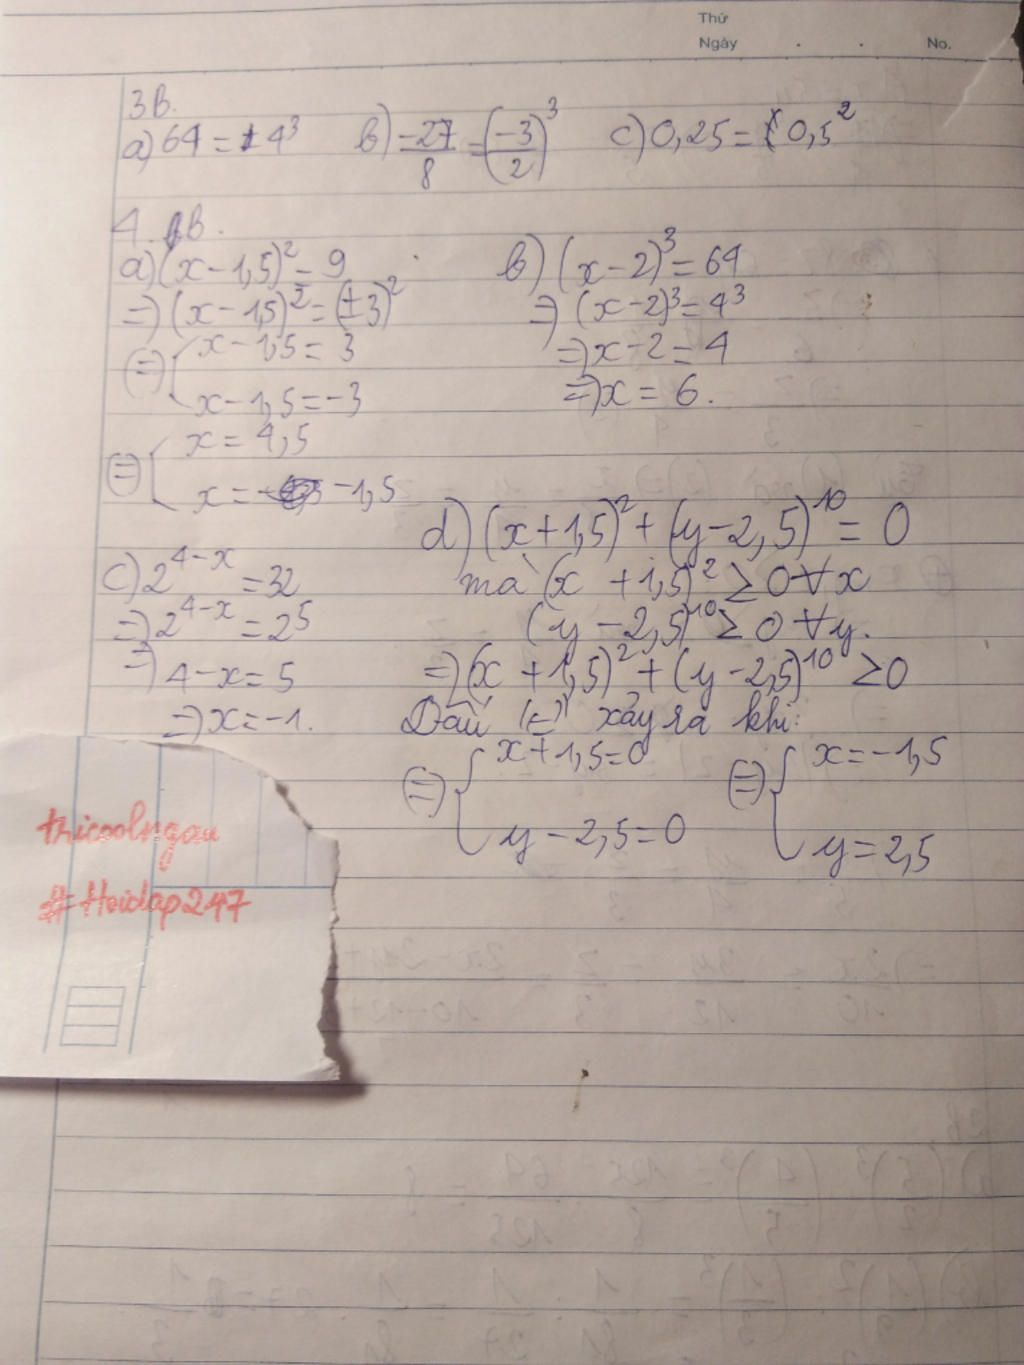 Thứ
Ngày . . No.
3B.
a) 64 = 4³ b) -27/8 = (-3/2)³ c) 0,25 = 0,5²
4. B.
a) (x-1,5)² = 9
=> (x-1,5)² = (±3)²
<=> [ x-1,5 = 3
x-1,5 = -3
<=> [ x = 4,5
x = -1,5
b) (x-2)³ = 64
=> (x-2)³ = 4³
=> x-2 = 4
=> x = 6.
c) 2^(4-x) = 32
=> 2^(4-x) = 2⁵
=> 4-x = 5
=> x = -1.
d) (x+1,5)² + (y-2,5)¹⁰ = 0
mà (x +1,5)² ≥ 0 ∀x
(y-2,5)¹⁰ ≥ 0 ∀y.
=> (x+1,5)² + (y-2,5)¹⁰ ≥ 0
Dấu (=) xảy ra khi:
<=> { x+1,5=0 <=> { x = -1,5
y-2,5=0 y = 2,5
thicoolngau
#Hoidap247